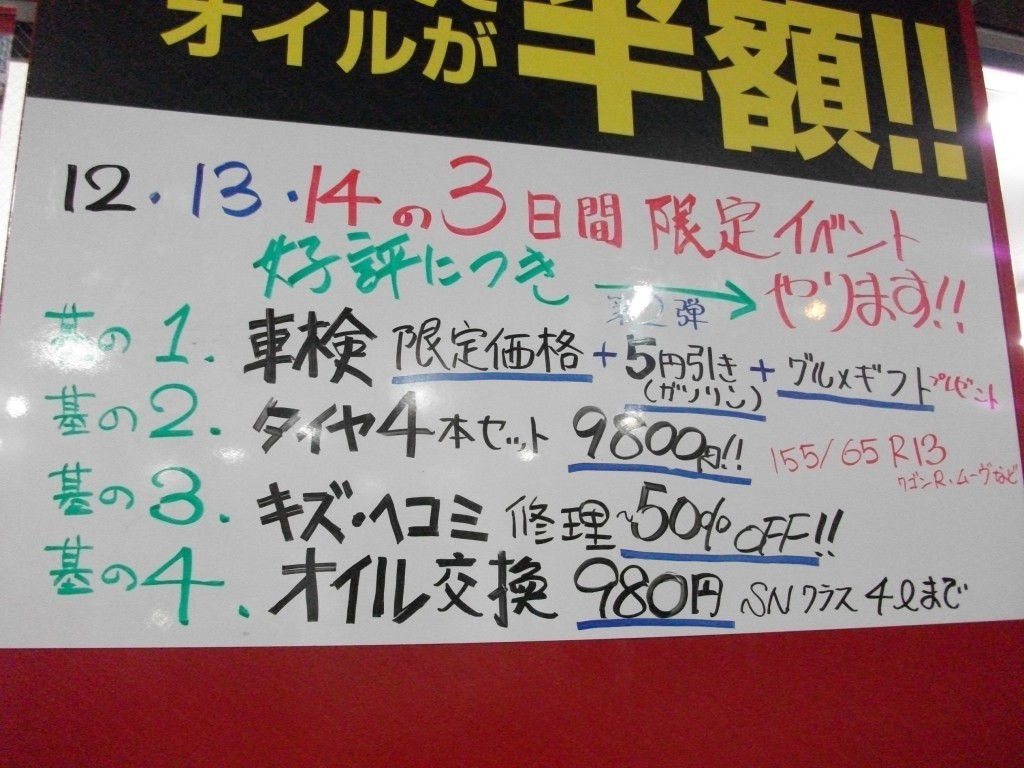 オイルが半額!!
12・13・14の3日間 限定イベント
好評につき → 第2弾 やります!!
基の1. 車検 限定価格 + 5円引き(ガソリン) + グルメギフトプレゼント
基の2. タイヤ4本セット 9800円!! 155/65R13 ワゴンR・ムーヴなど
基の3. キズ・ヘコミ 修理 ~50% OFF!!
基の4. オイル交換 980円 SNクラス 4ℓまで